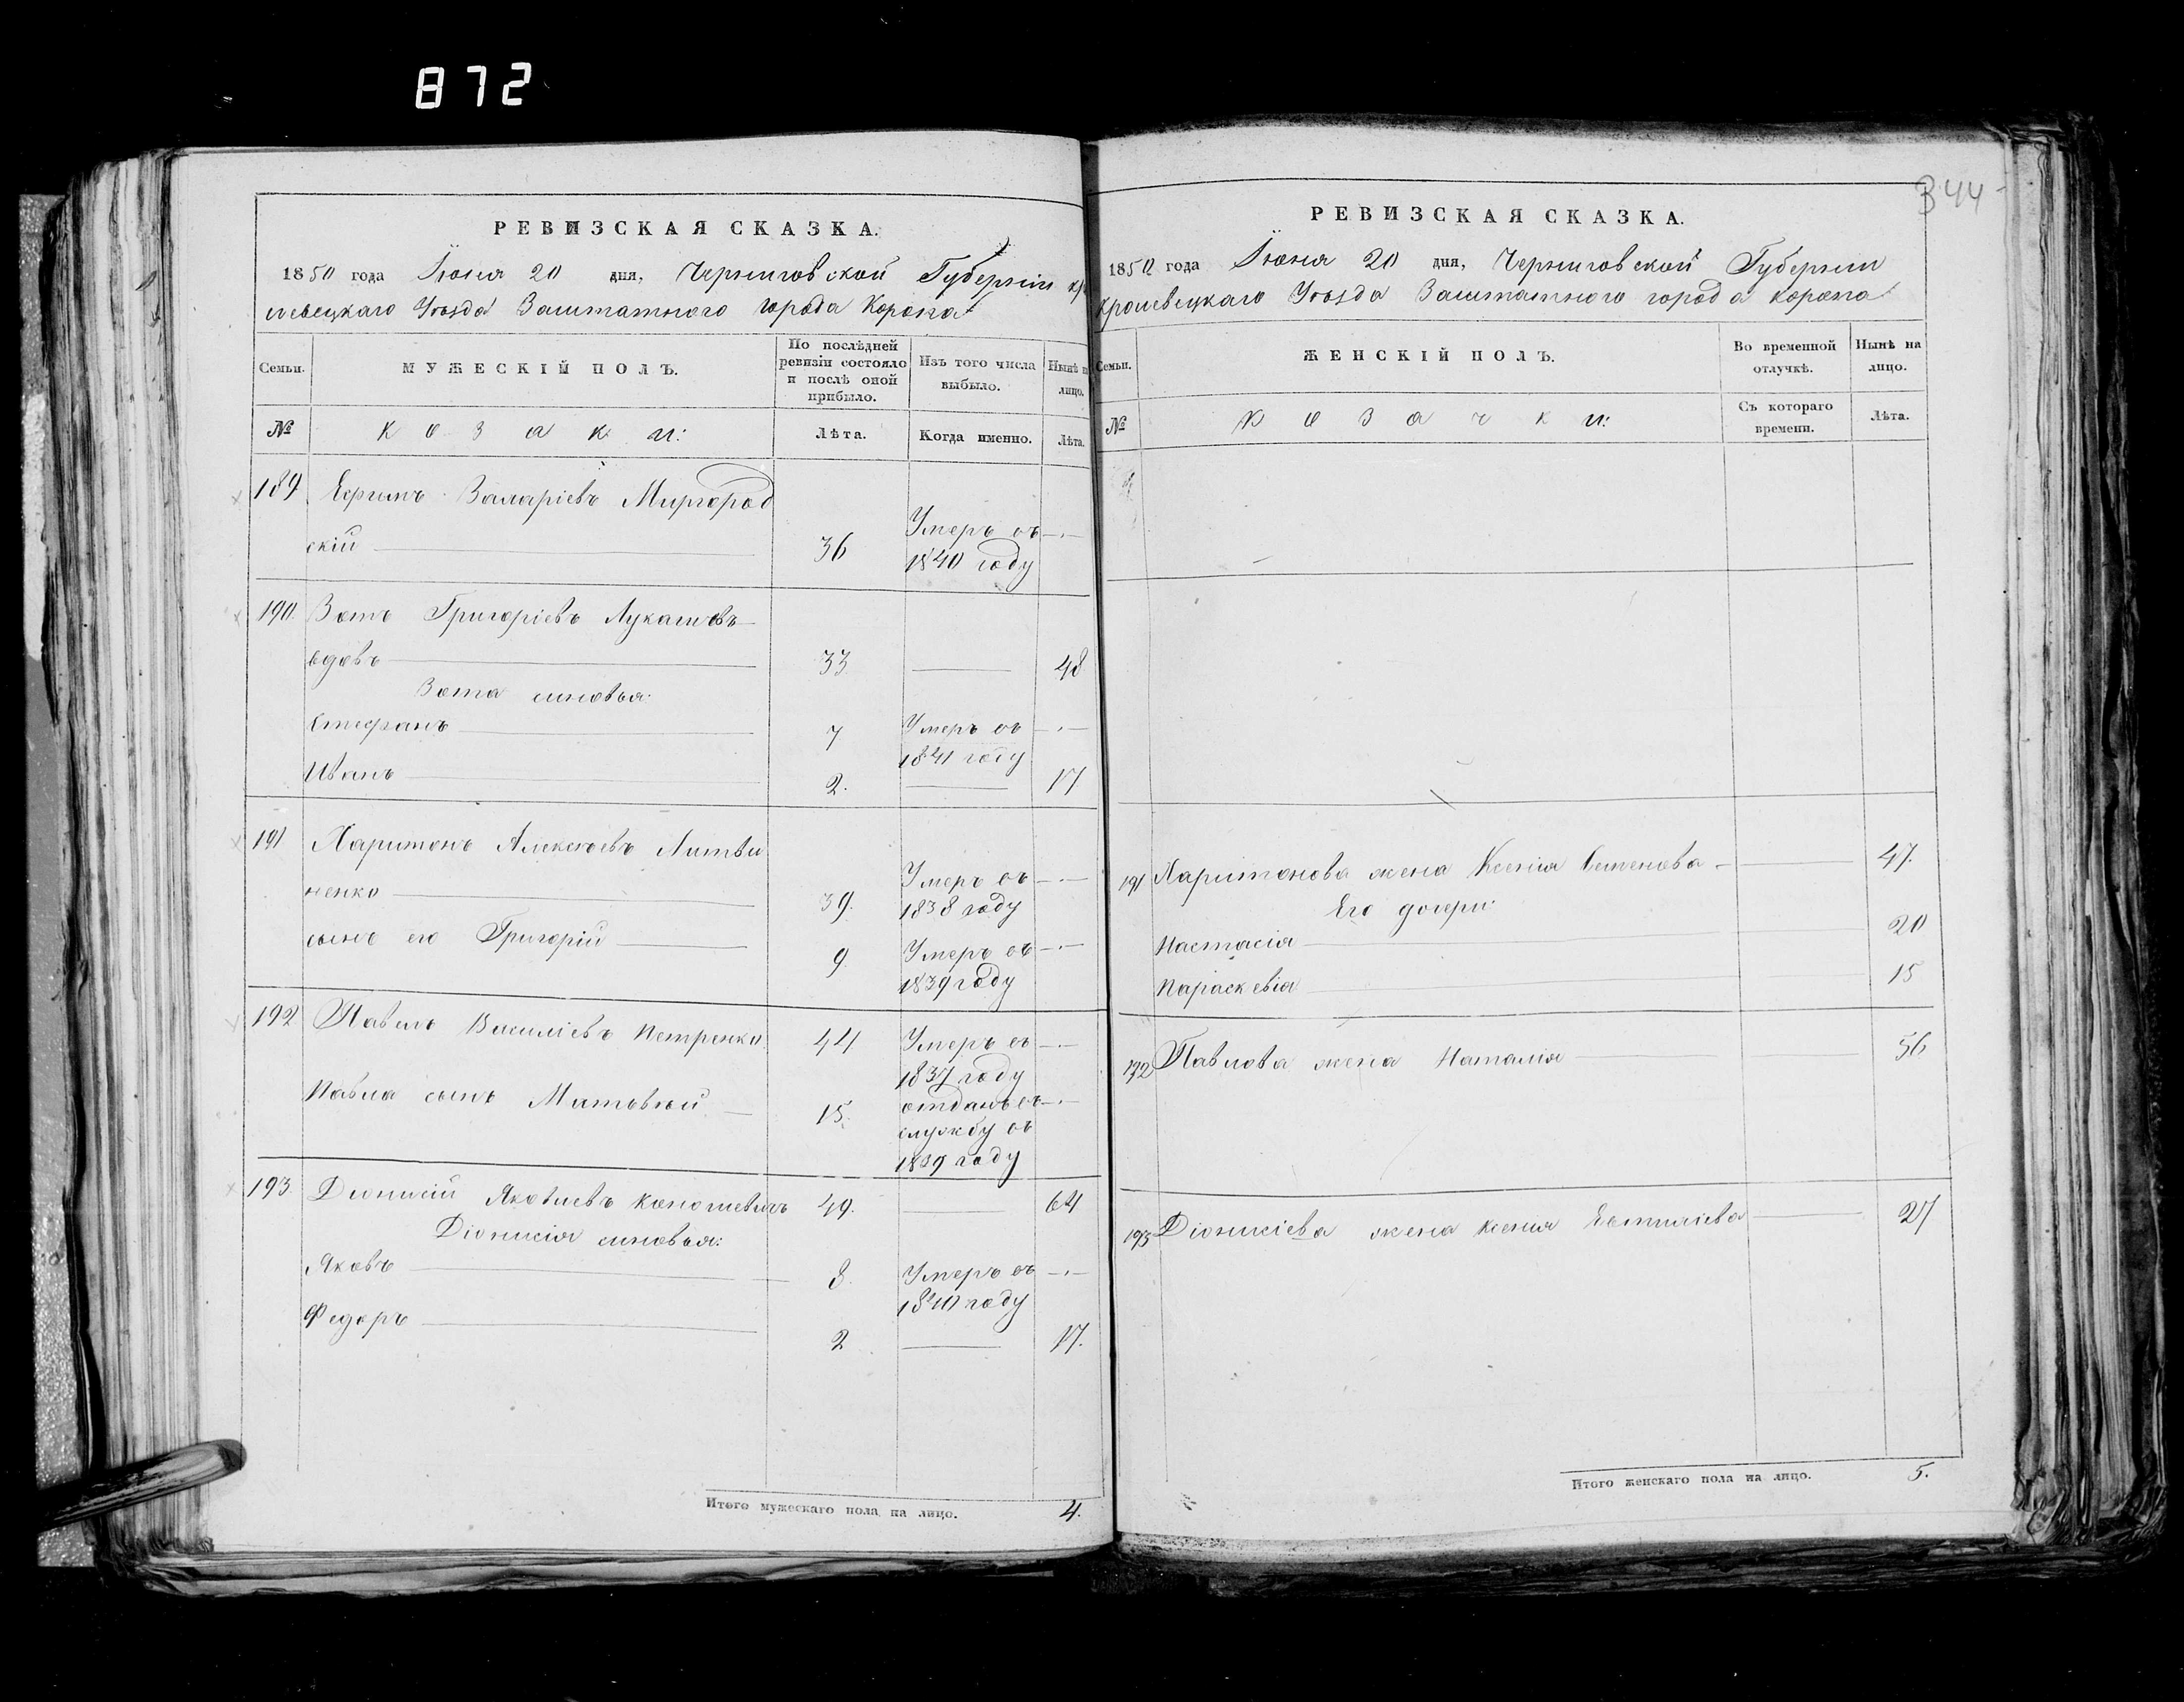 872
РЕВИЗСКАЯ СКАЗКА.
1850 года Іюня 20 дня, Черниговской Губерніи
Уѣзда Заштатнаго города Коропа
Семьи.
МУЖЕСКІЙ ПОЛЪ.
По послѣдней ревизіи состояло и послѣ оной прибыло.
Изъ того числа выбыло.
Нынѣ на лицо.
№
козаки:
Лѣта.
Когда именно.
Лѣта.
189 Миргород
скій 36 Умеръ въ
1840 году
190. Григоріевъ
33 48
синовья:
Стефанъ 7 Умеръ въ
1841 году
Иванъ 2. 17
191 Харитонъ Алексѣевъ Литви
ненко 39. Умеръ въ
1838 году
сынъ его Григорій 9 Умеръ въ
1839 году
192 Павелъ Василіевъ Петренко 44 Умеръ въ
1837 году
Павла сынъ Матвѣй 15. отданъ въ
службу въ
1839 году
193. Діонисій Яковлевъ 49. 64
Діонисія синовья:
Яковъ 8. Умеръ въ
1840 году
Федоръ 2 17.
Итого мужескаго пола на лицо. 4.
344
РЕВИЗСКАЯ СКАЗКА.
1850 года Іюня 20 дня, Черниговской Губерніи
Кролевецкаго Уѣзда Заштатного города Коропа
Семьи.
ЖЕНСКІЙ ПОЛЪ.
Во временной отлучкѣ.
Нынѣ на лицо.
№
козачки:
Съ котораго времени.
Лѣта.
191 Харитонова жена Ксенія Семенова 47.
Его дочери:
Настасія 20
Параскевія 15
192 Павлова жена Наталія 56
193 Діонисіева жена Ксенія 27
Итого женскаго пола на лицо. 5.